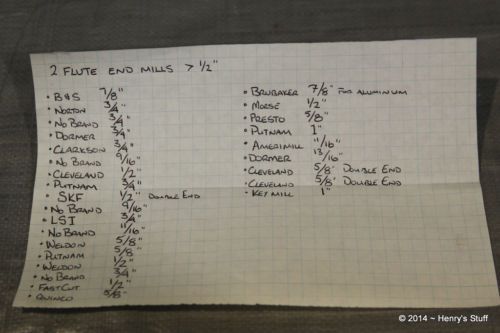 2 FLUTE END MILLS > 1/2"
• B&S 7/8"
• NORTON 3/4"
• NO BRAND 3/4"
• DORMER 3/4"
• CLARKSON 3/4"
• NO BRAND 9/16"
• CLEVELAND 1/2"
• PUTNAM 3/4"
• SKF 1/2" DOUBLE END
• NO BRAND 9/16"
• LSI 3/4"
• NO BRAND 11/16"
• WELDON 5/8"
• PUTNAM 5/8"
• WELDON 1/2"
• NO BRAND 3/4"
• FASTCUT 1/2"
• QWINCO 5/8"
• BRUBAKER 7/8" FOR ALUMINUM
• MORSE 1/2"
• PRESTO 5/8"
• PUTNAM 1"
• AMERIMILL 11/16"
• DORMER 13/16"
• CLEVELAND 5/8" DOUBLE END
• CLEVELAND 5/8" DOUBLE END
• KEY MILL 1"
© 2014 ~ Henry's Stuff